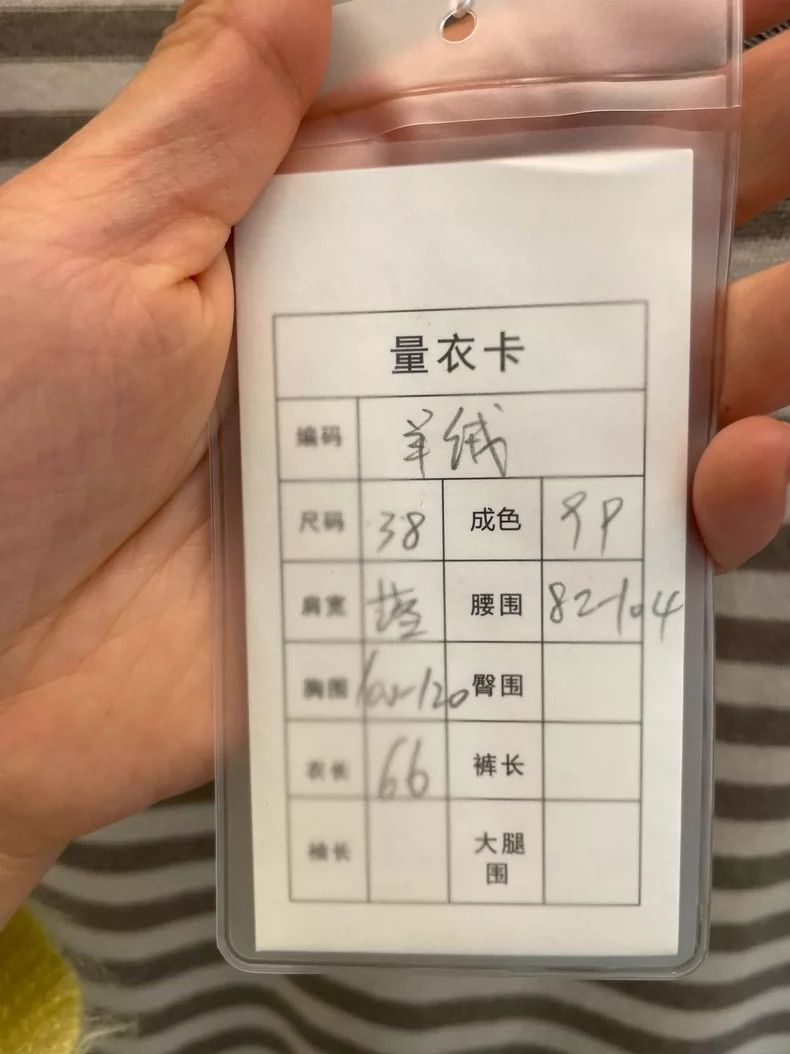 量衣卡
编码 羊绒
尺码 38 成色 99
肩宽 腰围 82-104
胸围 100-120 臀围
衣长 66 裤长
袖长 大腿围